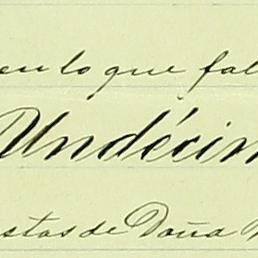 en lo que fal
Undécim
stas de Doña